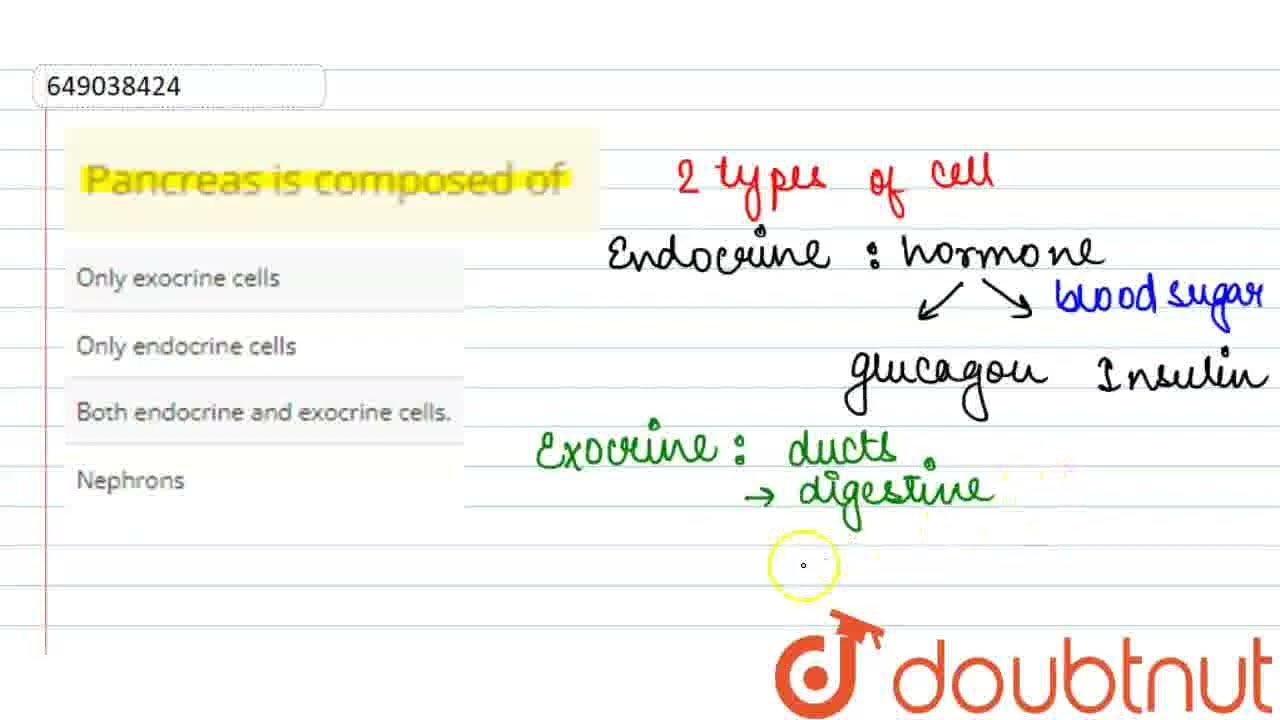 649038424
Pancreas is composed of
Only exocrine cells
Only endocrine cells
Both endocrine and exocrine cells.
Nephrons
2 types of cell
Endocrine : hormone
blood sugar
glucagon Insulin
Exocrine : ducts
→ digestine
doubtnut